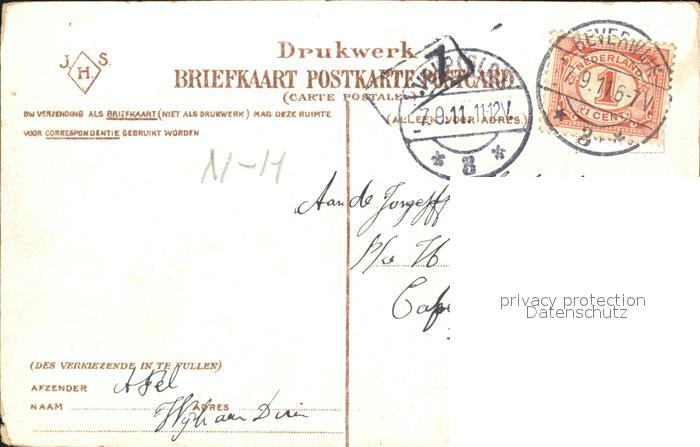 J. H. S.
Drukwerk
BRIEFKAART POSTKARTE POSTCARD
(CARTE POSTALE)
BIJ VERZENDING ALS BRIEFKAART (NIET ALS DRUKWERK) MAG DEZE RUIMTE
(ALLEEN VOOR ADRES.)
VOOR CORRESPONDENTIE GEBRUIKT WORDEN
7.9.11.11-12V
8
7
BEVERWIJK
7.9.11.6-7V
8
NEDERLAND
1
(1 CENT)
N-H
Aan de
Cape
privacy protection
Datenschutz
(DES VERKIEZENDE IN TE VULLEN)
AFZENDER
NAAM ADRES
Wijk aan Duin